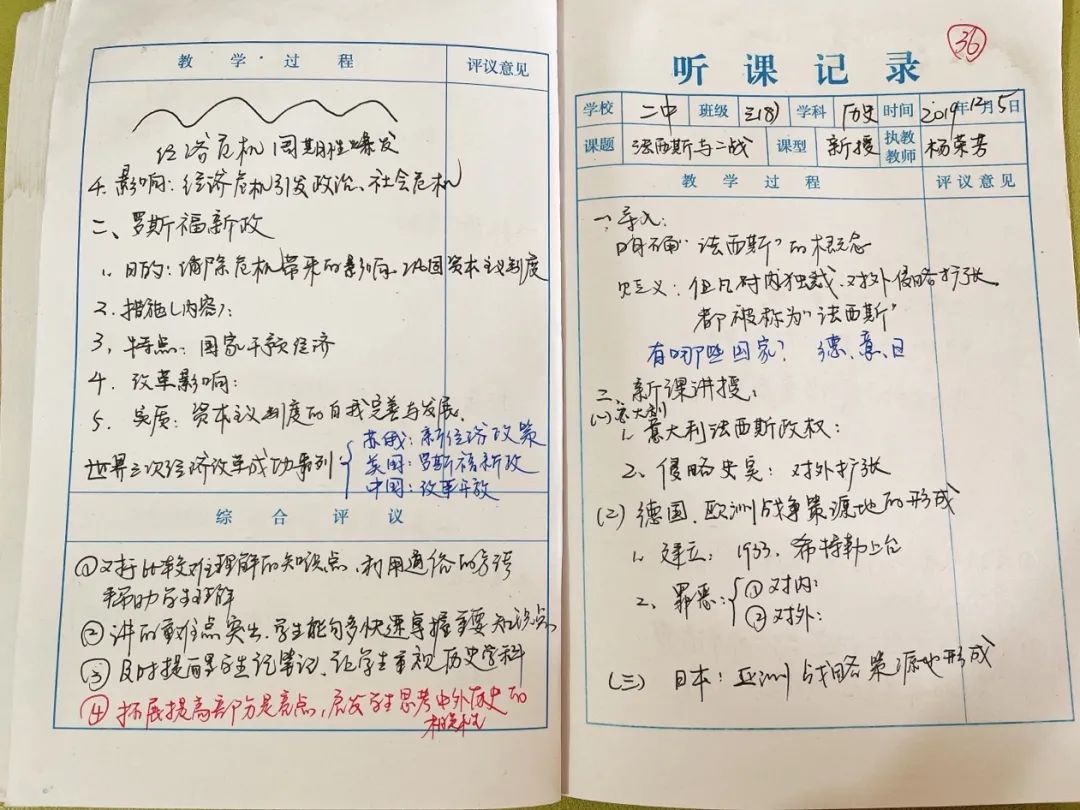 教 学 过 程 评议意见
经济危机周期性爆发
4. 影响：经济危机引发政治、社会危机
二、罗斯福新政
1. 目的：消除危机带来的影响，巩固资本主义制度
2. 措施（内容）：
3. 特点：国家干预经济
4. 改革影响：
5. 实质：资本主义制度的自我完善与发展.
世界三次经济改革成功案例：
苏俄：新经济政策
美国：罗斯福新政
中国：改革开放
综 合 评 议
①对于比较难理解的知识点，利用通俗的方语
帮助学生理解
②讲的重难点突出，学生能够多快速掌握主要知识点
③及时提醒学生记笔记，让学生重视历史学科
④拓展提高部分是亮点，启发学生思考中外历史的
相关性
36
听 课 记 录
学校 二中 班级 三(8) 学科 历史 时间 2019年12月5日
课题 法西斯与二战 课型 新授 执教教师 杨荣芳
教 学 过 程 评议意见
一、导入：
明确“法西斯”的概念
定义：但凡对内独裁、对外侵略扩张
都被称为“法西斯”
有哪些国家？ 德、意、日
二、新课讲授：
(一)意大利
1. 意大利法西斯政权：
2、侵略史实：对外扩张
(二) 德国、欧洲战争策源地的形成
1. 建立：1933. 希特勒上台
2、罪恶：
①对内：
②对外：
(三) 日本：亚洲战略策源地形成